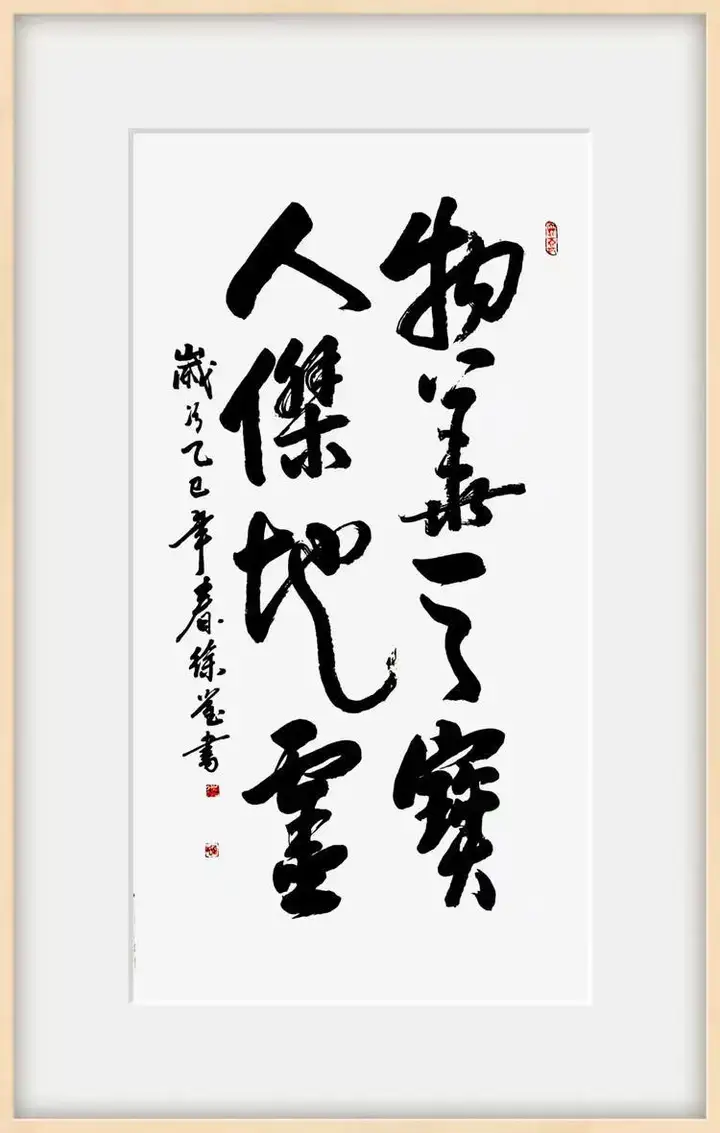 物華天寶
人傑地靈
歲乙巳年春徐書